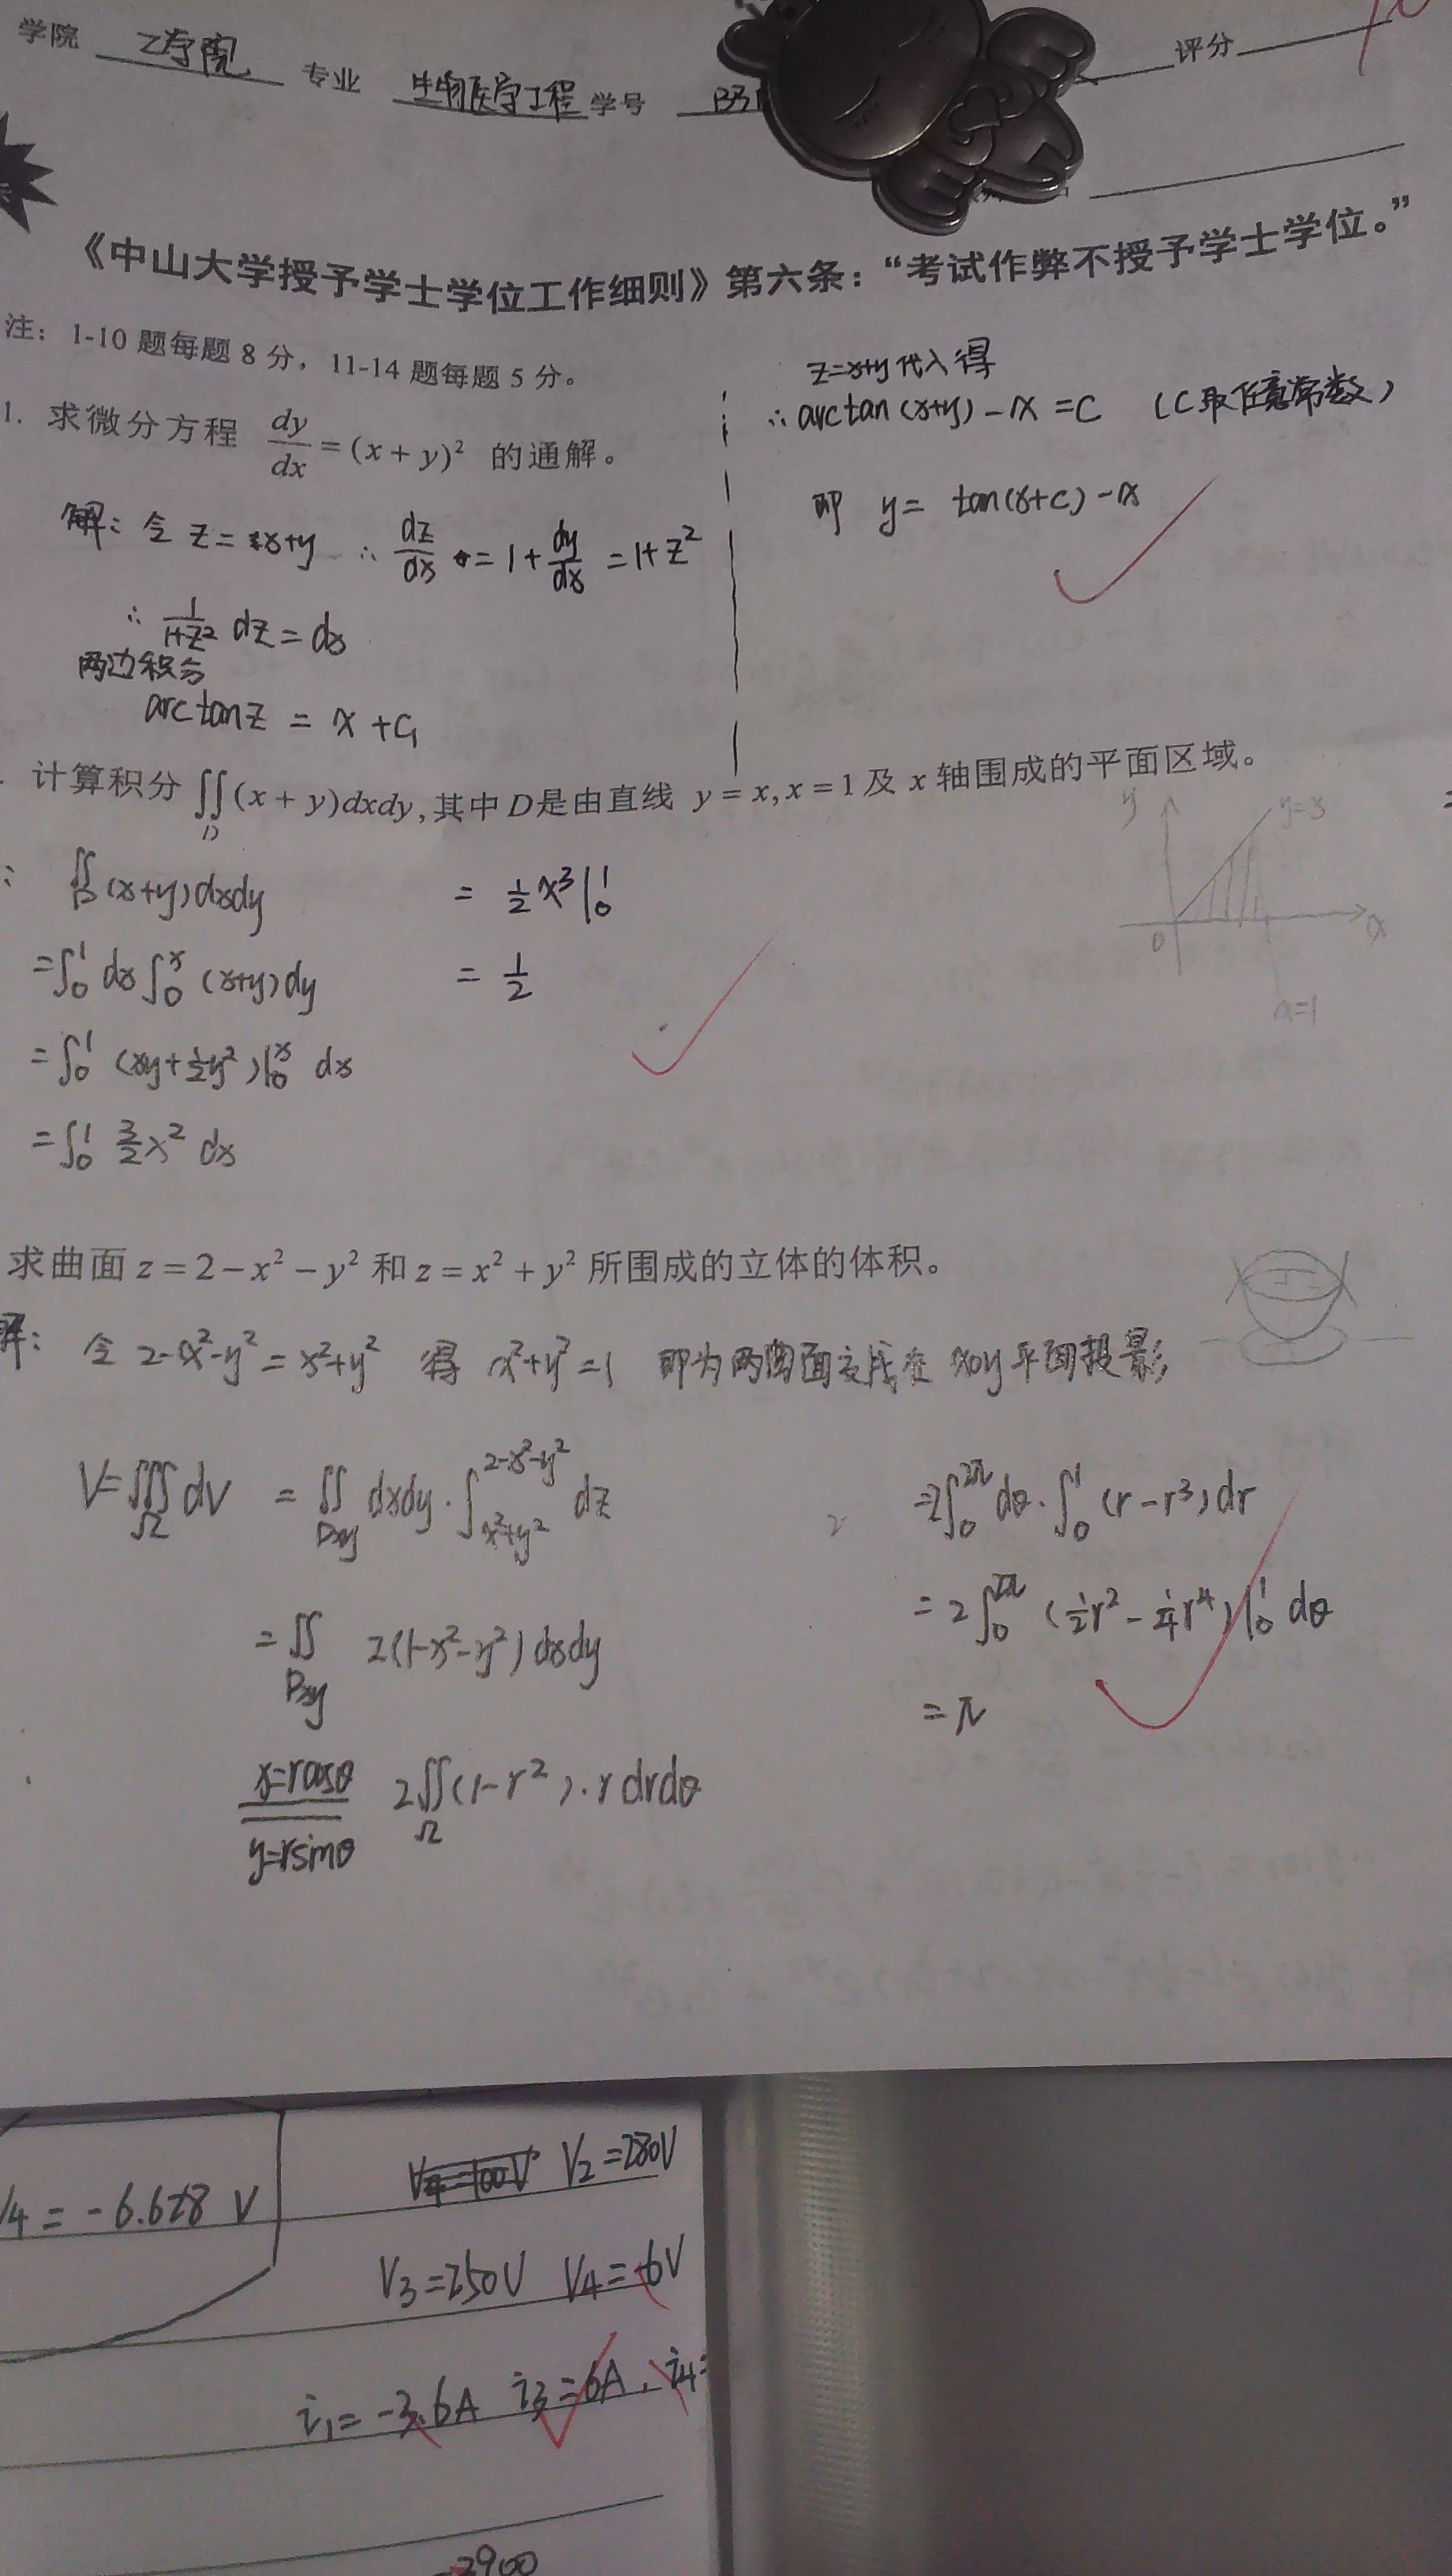 学院 工学院 专业 生物医学工程 学号 1331 评分
《中山大学授予学士学位工作细则》第六条：“考试作弊不授予学士学位。”
注：1-10 题每题 8 分，11-14 题每题 5 分。
1. 求微分方程 dy/dx = (x + y)² 的通解。
解：令 z = x+y ∴ dz/dx = 1 + dy/dx = 1+z²
∴ 1/(1+z²) dz = dx
两边积分
arctan z = x + C₁
z=x+y 代入得
∴ arctan(x+y) - x = C （C取任意常数）
即 y = tan(x+c) - x
计算积分 ∬_D (x + y)dxdy, 其中 D是由直线 y = x, x = 1 及 x 轴围成的平面区域。
∬_D (x+y)dxdy
= ∫₀¹ dx ∫₀ˣ (x+y)dy
= ∫₀¹ (xy + ½y²)|₀ˣ dx
= ∫₀¹ 3/2 x² dx
= ½x³|₀¹
= ½
y
y=x
0
x
x=1
求曲面 z = 2 − x² − y² 和 z = x² + y² 所围成的立体的体积。
解：令 2-x²-y² = x²+y² 得 x²+y²=1 即为两曲面交线在 xoy 平面投影
V = ∭_Ω dv = ∬_Dxy dxdy · ∫_{x²+y²}^{2-x²-y²} dz
= ∬_Dxy 2(1-x²-y²) dxdy
x=rcosθ
y=rsinθ
2∬_Ω (1-r²)·r drdθ
= 2∫₀^{2π} dθ · ∫₀¹ (r-r³) dr
= 2∫₀^{2π} (½r² - ¼r⁴)|₀¹ dθ
= π
V₄ = -6.628 V
V₂ = 280V
V₃ = 250V V₄ = -6V
i₁ = -3.6A i₃ = 6A, i₄=
-2900